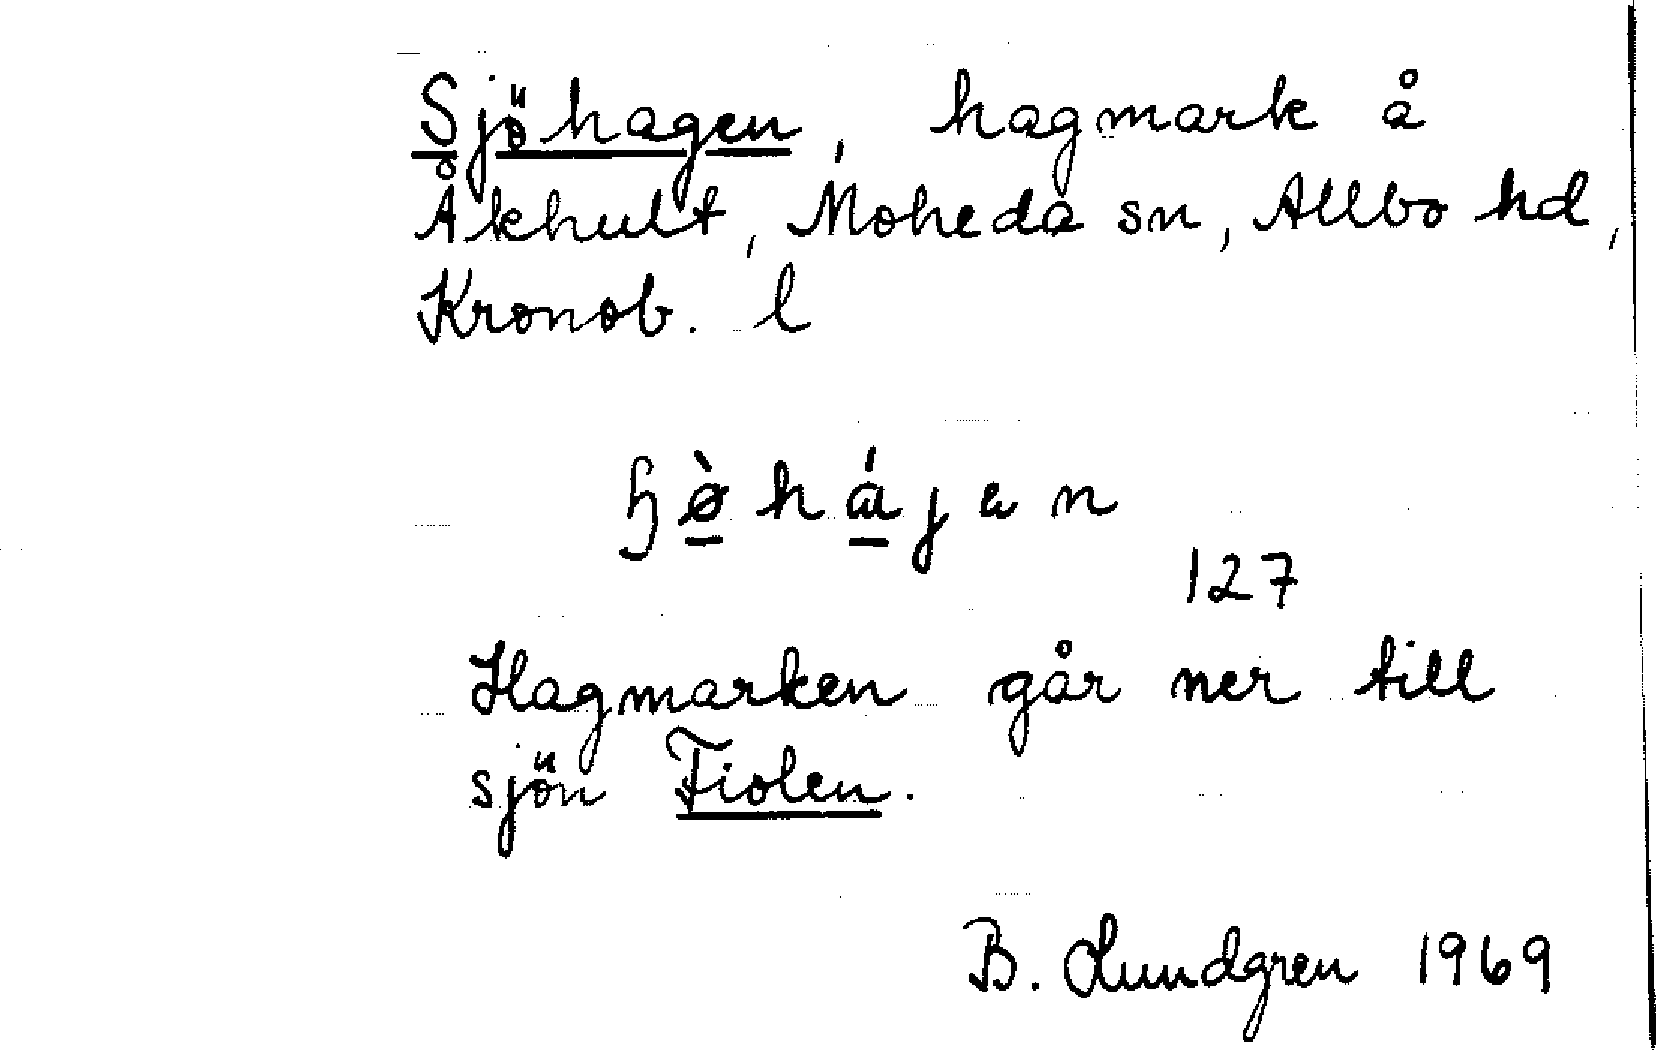 Sjöhagen, hagmark å
Åkhult, Moheda sn, Allbo hd,
Kronob. l
ɧø̠̀há̠jen
127
Hagmarken går ner till
sjön Fiolen.
B. Lundgren 1969